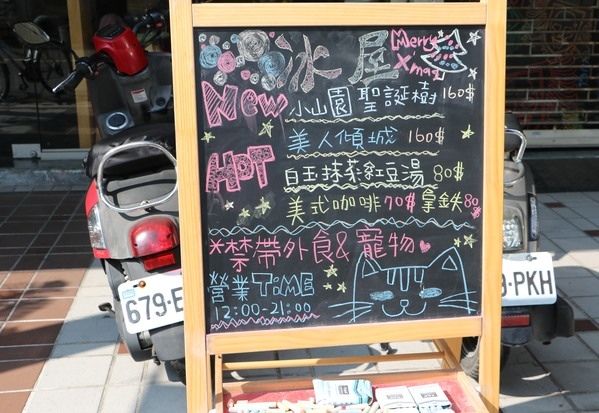 冰屋
Merry
Xmas
New 小山園聖誕樹 160$
美人傾城 160$
HOT 白玉抹茶紅豆湯 80$
美式咖啡 70$ 拿鐵 80$
*禁帶外食&寵物
營業TIME
12:00-21:00
679-E
9-PKH